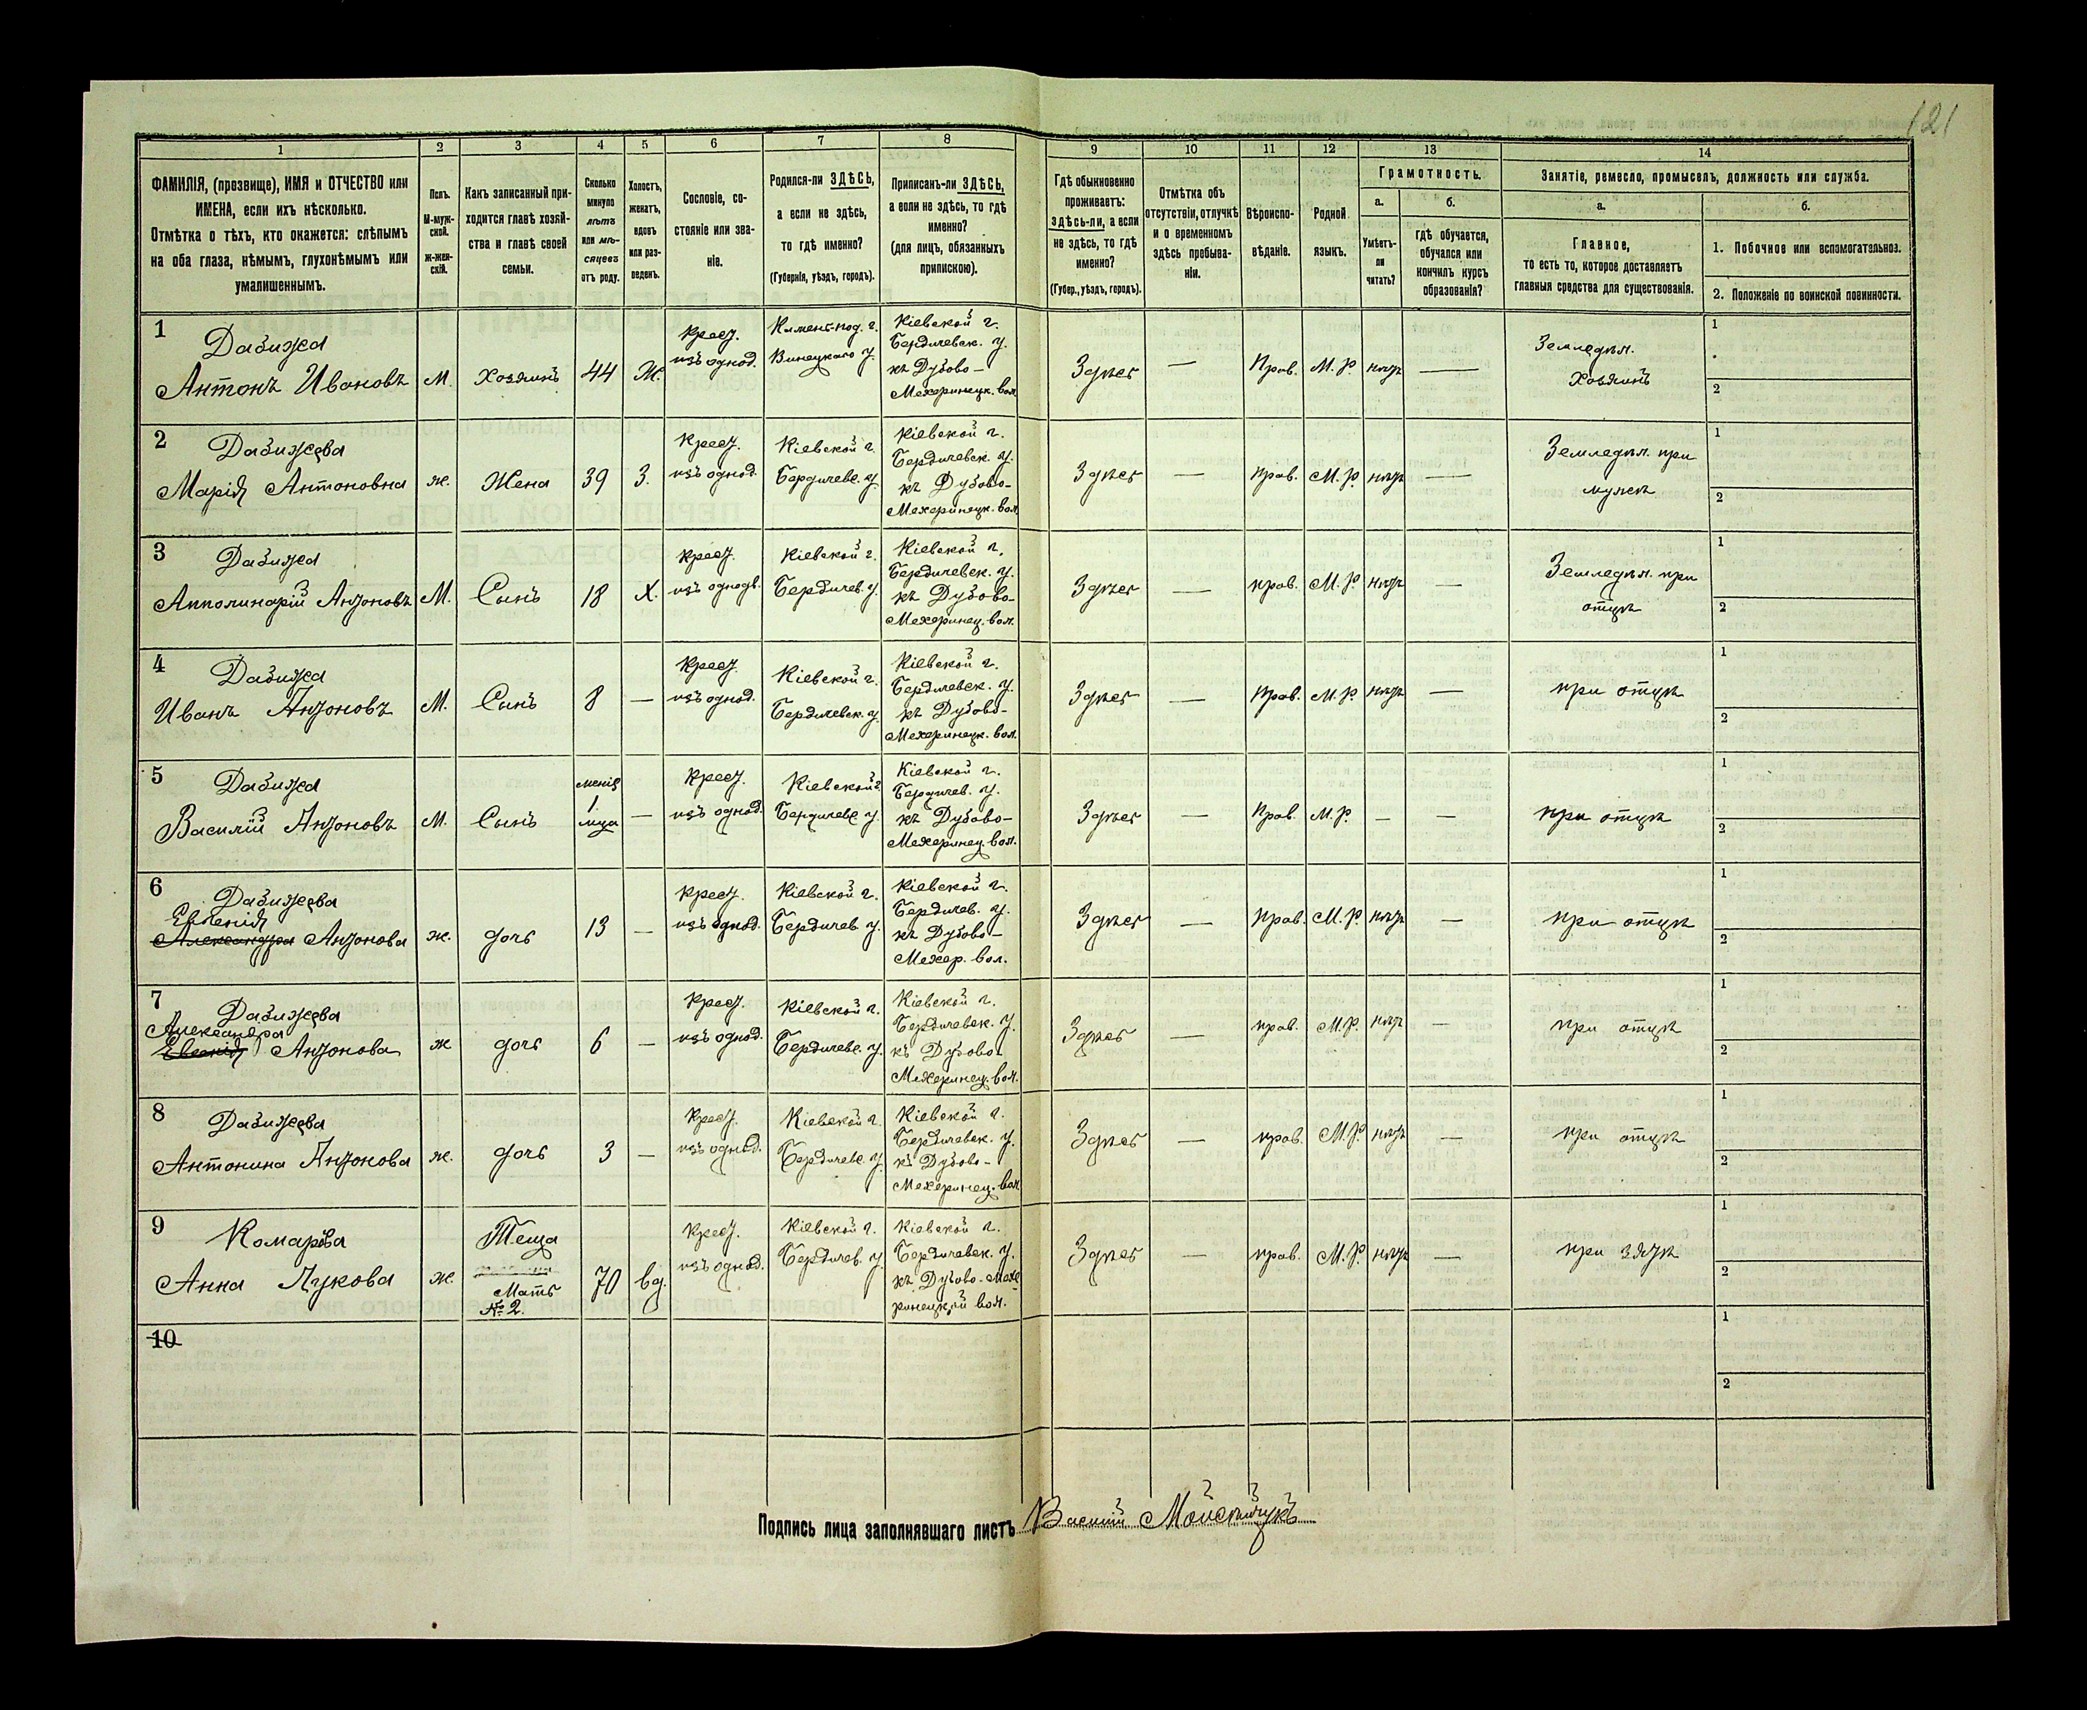 121
1 2 3 4 5 6 7 8 9 10 11 12 13 14
ФАМИЛІЯ, (прозвище), ИМЯ и ОТЧЕСТВО или
ИМЕНА, если ихъ нѣсколько.
Отмѣтка о тѣхъ, кто окажется: слѣпымъ
на оба глаза, нѣмымъ, глухонѣмымъ или
умалишеннымъ.
Полъ.
М-муж-
ской.
Ж-жен-
скій.
Какъ записанный при-
ходится главѣ хозяй-
ства и главѣ своей
семьи.
Сколько
минуло
лѣтъ
или мѣ-
сяцевъ
отъ роду.
Холостъ,
женатъ,
вдовъ
или раз-
веденъ.
Сословіе, со-
стояніе или зва-
ніе.
Родился-ли ЗДѢСЬ,
а если не здѣсь,
то гдѣ именно?
(Губернія, уѣздъ, городъ).
Приписанъ-ли ЗДѢСЬ,
а если не здѣсь, то гдѣ
именно?
(для лицъ, обязанныхъ
припискою).
Гдѣ обыкновенно
проживаетъ:
здѣсь-ли, а если
не здѣсь, то гдѣ
именно?
(Губер., уѣздъ, городъ).
Отмѣтка объ
отсутствіи, отлучкѣ
и о временномъ
здѣсь пребыва-
ніи.
Вѣроиспо-
вѣданіе.
Родной
языкъ.
Грамотность.
а.
Умѣетъ-
ли
читать?
б.
гдѣ обучается,
обучался или
кончилъ курсъ
образованія?
Занятіе, ремесло, промыселъ, должность или служба.
а.
Главное,
то есть то, которое доставляетъ
главныя средства для существованія.
б.
1. Побочное или вспомогательное.
2. Положеніе по воинской повинности.
1
Дабижа
Антонъ Ивановъ
М.
Хозяинъ
44
Ж.
Крест.
изъ однод.
Камен-под. г.
Винецкаго у.
Кіевской г.
Бердичевск. у.
къ Дубово-
Мехеринецк. вол.
Здѣсь
—
Прав.
М. Р.
нѣтъ
—
Земледѣл.
Хозяинъ
1
2
2
Дабижева
Марія Антоновна
ж.
Жена
39
З.
Крест.
изъ однод.
Кіевской г.
Бердичевс. у.
Кіевской г.
Бердичевск. у.
къ Дубово-
Мехеринецк. вол.
Здѣсь
—
Прав.
М. Р.
нѣтъ
—
Земледѣл. при
мужѣ
1
2
3
Дабижа
Апполинарій Антоновъ
М.
Сынъ
18
Х.
Крест.
изъ однодв.
Кіевской г.
Бердичев. у.
Кіевской г.
Бердичевск. у.
къ Дубово-
Мехеринец. вол.
Здѣсь
—
прав.
М. Р.
нѣтъ
—
Земледѣл. при
отцѣ
1
2
4
Дабижа
Иванъ Антоновъ
М.
Сынъ
8
—
Крест.
изъ однод.
Кіевской г.
Бердичевск. у.
Кіевской г.
Бердичевск. у.
къ Дубово-
Мехеринецк. вол.
Здѣсь
—
Прав.
М. Р.
нѣтъ
—
при отцѣ
1
2
5
Дабижа
Василій Антоновъ
М.
Сынъ
менѣе
1.
мца
—
Крест.
изъ однод.
Кіевской г.
Бердичевс. у.
Кіевской г.
Бердичев. у.
къ Дубово-
Мехеринец. вол.
Здѣсь
—
Прав.
М. Р.
—
—
при отцѣ
1
2
6
Дабижева
Евгенія
Александра Антонова
ж.
дочь
13
—
Крест.
изъ однод.
Кіевской г.
Бердичев. у.
Кіевской г.
Бердичев. у.
къ Дубово-
Мехер. вол.
Здѣсь
—
Прав.
М. Р.
нѣтъ
—
при отцѣ
1
2
7
Дабижева
Александра
Евгенія Антонова
ж
дочь
6
—
Крест.
изъ однод.
Кіевской г.
Бердичевс. у.
Кіевской г.
Бердичевск. у.
къ Дубово-
Мехеринец. вол.
Здѣсь
—
прав.
М. Р.
нѣтъ
—
при отцѣ
1
2
8
Дабижева
Антонина Антонова
ж.
дочь
3
—
Крест.
изъ однод.
Кіевской г.
Бердичевс. у.
Кіевской г.
Бердичевск. у.
къ Дубово-
Мехеринец. вол.
Здѣсь
—
прав.
М. Р.
нѣтъ
—
при отцѣ
1
2
9
Комарова
Анна Лукова
ж.
Теща
Мать
№ 2.
70
вд.
Крест.
изъ однод.
Кіевской г.
Бердичев. у.
Кіевской г.
Бердичевск. у.
къ Дубово-Мехе
ринецкой вол.
Здѣсь
—
прав.
М. Р.
нѣтъ
—
при зятѣ
1
2
10
1
2
Подпись лица заполнявшаго листъ Василій